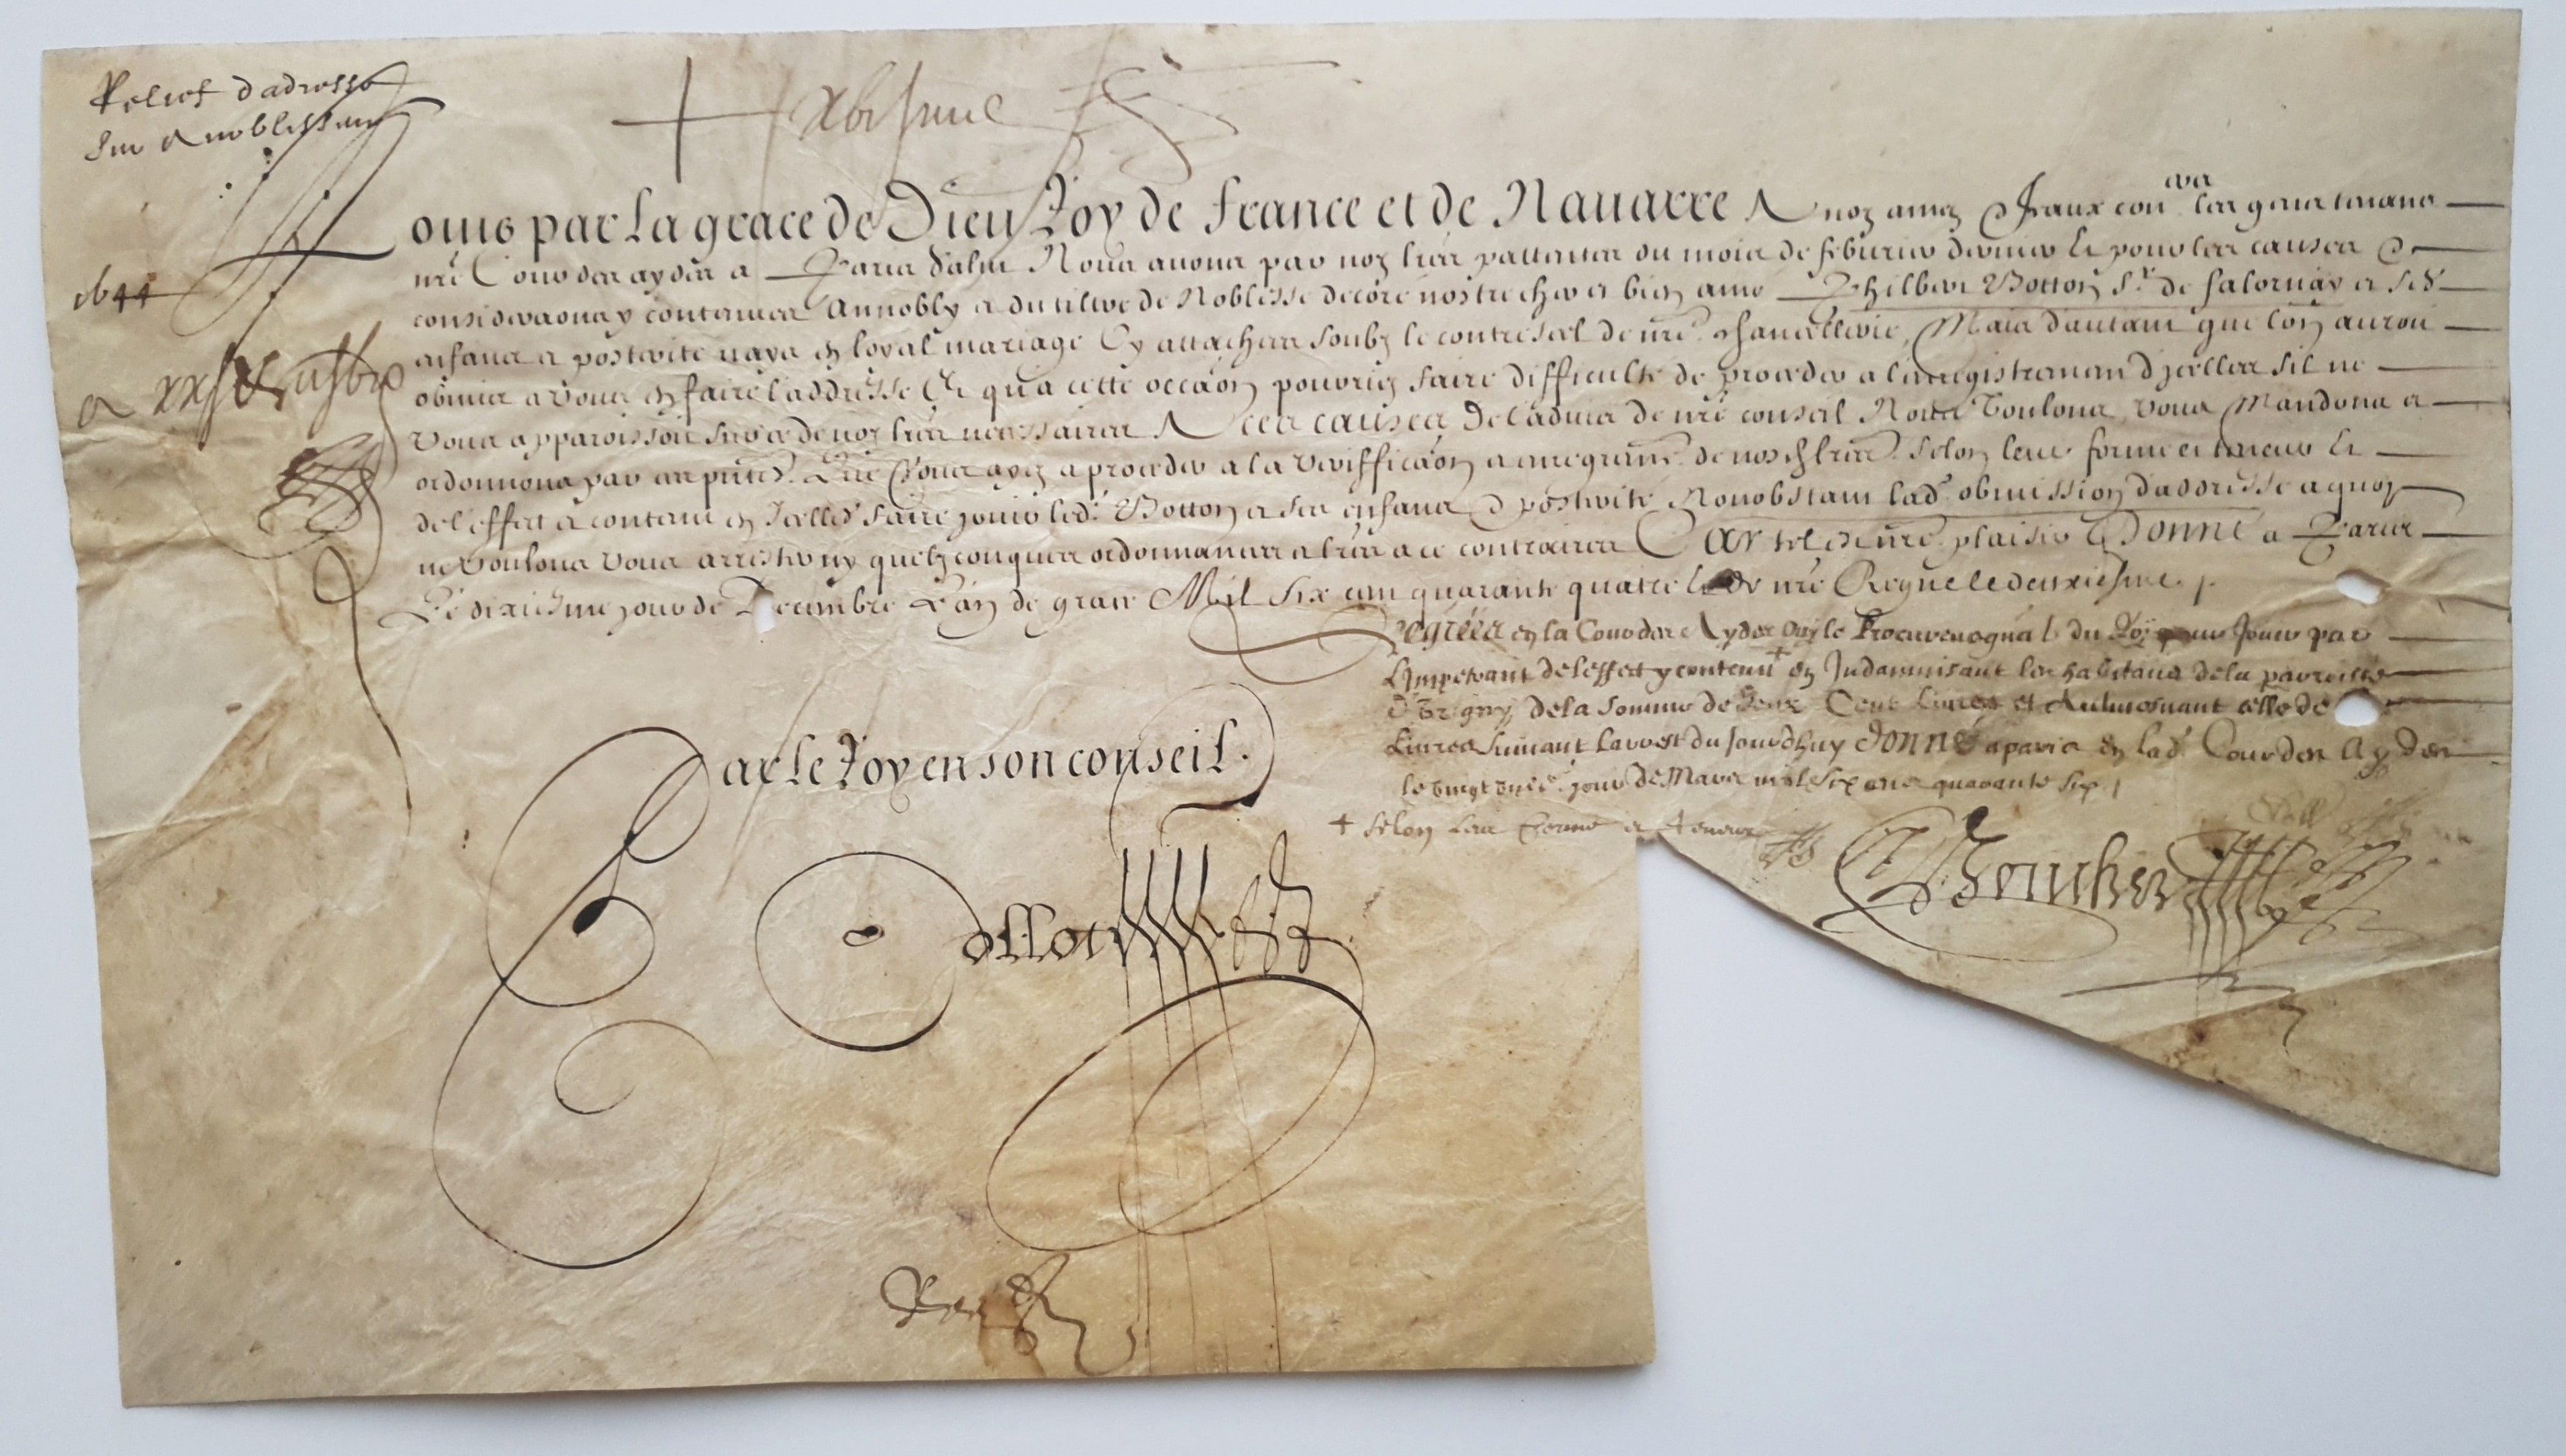 Relief d'adresse
sur anoblissem
1644
Louis par la grace de Dieu Roy de france et de Nauarre A noz amez & feaux con^ers les gens tenans
nre Cour des aydes a Paris salut Nous auons par noz lres pattentes du mois de feburier dernier Et pour les causes &
consideraons y contenues Annobly et du tiltre de Noblesse decoré nostre cher et bien amé Philbert Botton Sr. de Salornay et ses
enfans et posterité nays en loyal mariage Cy attachees soubz le contrescel de nre chancellerie, Mais dautant que lon auroit
obmis a vous en faire l'addresse Et qu'a cette occaon pouuriez faire difficulté de proceder a lenregistrement d'jcelles sil ne
vous apparoissoit sur ce de noz lres necessaires A ces causes De l'aduis de nre conseil Nous Voulons, vous Mandons et
ordonnons par ces pntes. Que Vous ayez a proceder a la veriffication et enregrement de nosd lres. selon leur forme et teneur Et
de l'effect et contenu en Jcelles faire jouir led. Botton et ses enfans & posterité Nonobstant lad. obmission d'addresse a quoy
ne voulons vous arrester ny quelzconques ordonnances et lres a ce contraires Car tel est nre plaisir Donné a Paris
Le dixiesme jour de Decembre L'an de grace Mil six cens quarante quatre Et de nre Regne le deuxiesme.
Regrées en la Cour des Aydes Ouy le Procureur gnal du Roy pour Jouir par
L'Impetrant de l'effect y contenu + en Indamnisant les habitans de la parroisse
de la somme de Deux Cens Liures et Aulmosnant celle de
Liures suiuant larrest du Jourdhuy Donné a paris en lad. Cour des Aydes
le vingt jour de Mars mil six cens quarante six
+ selon leur forme et teneur
Par le Roy en son conseil.
Boucher